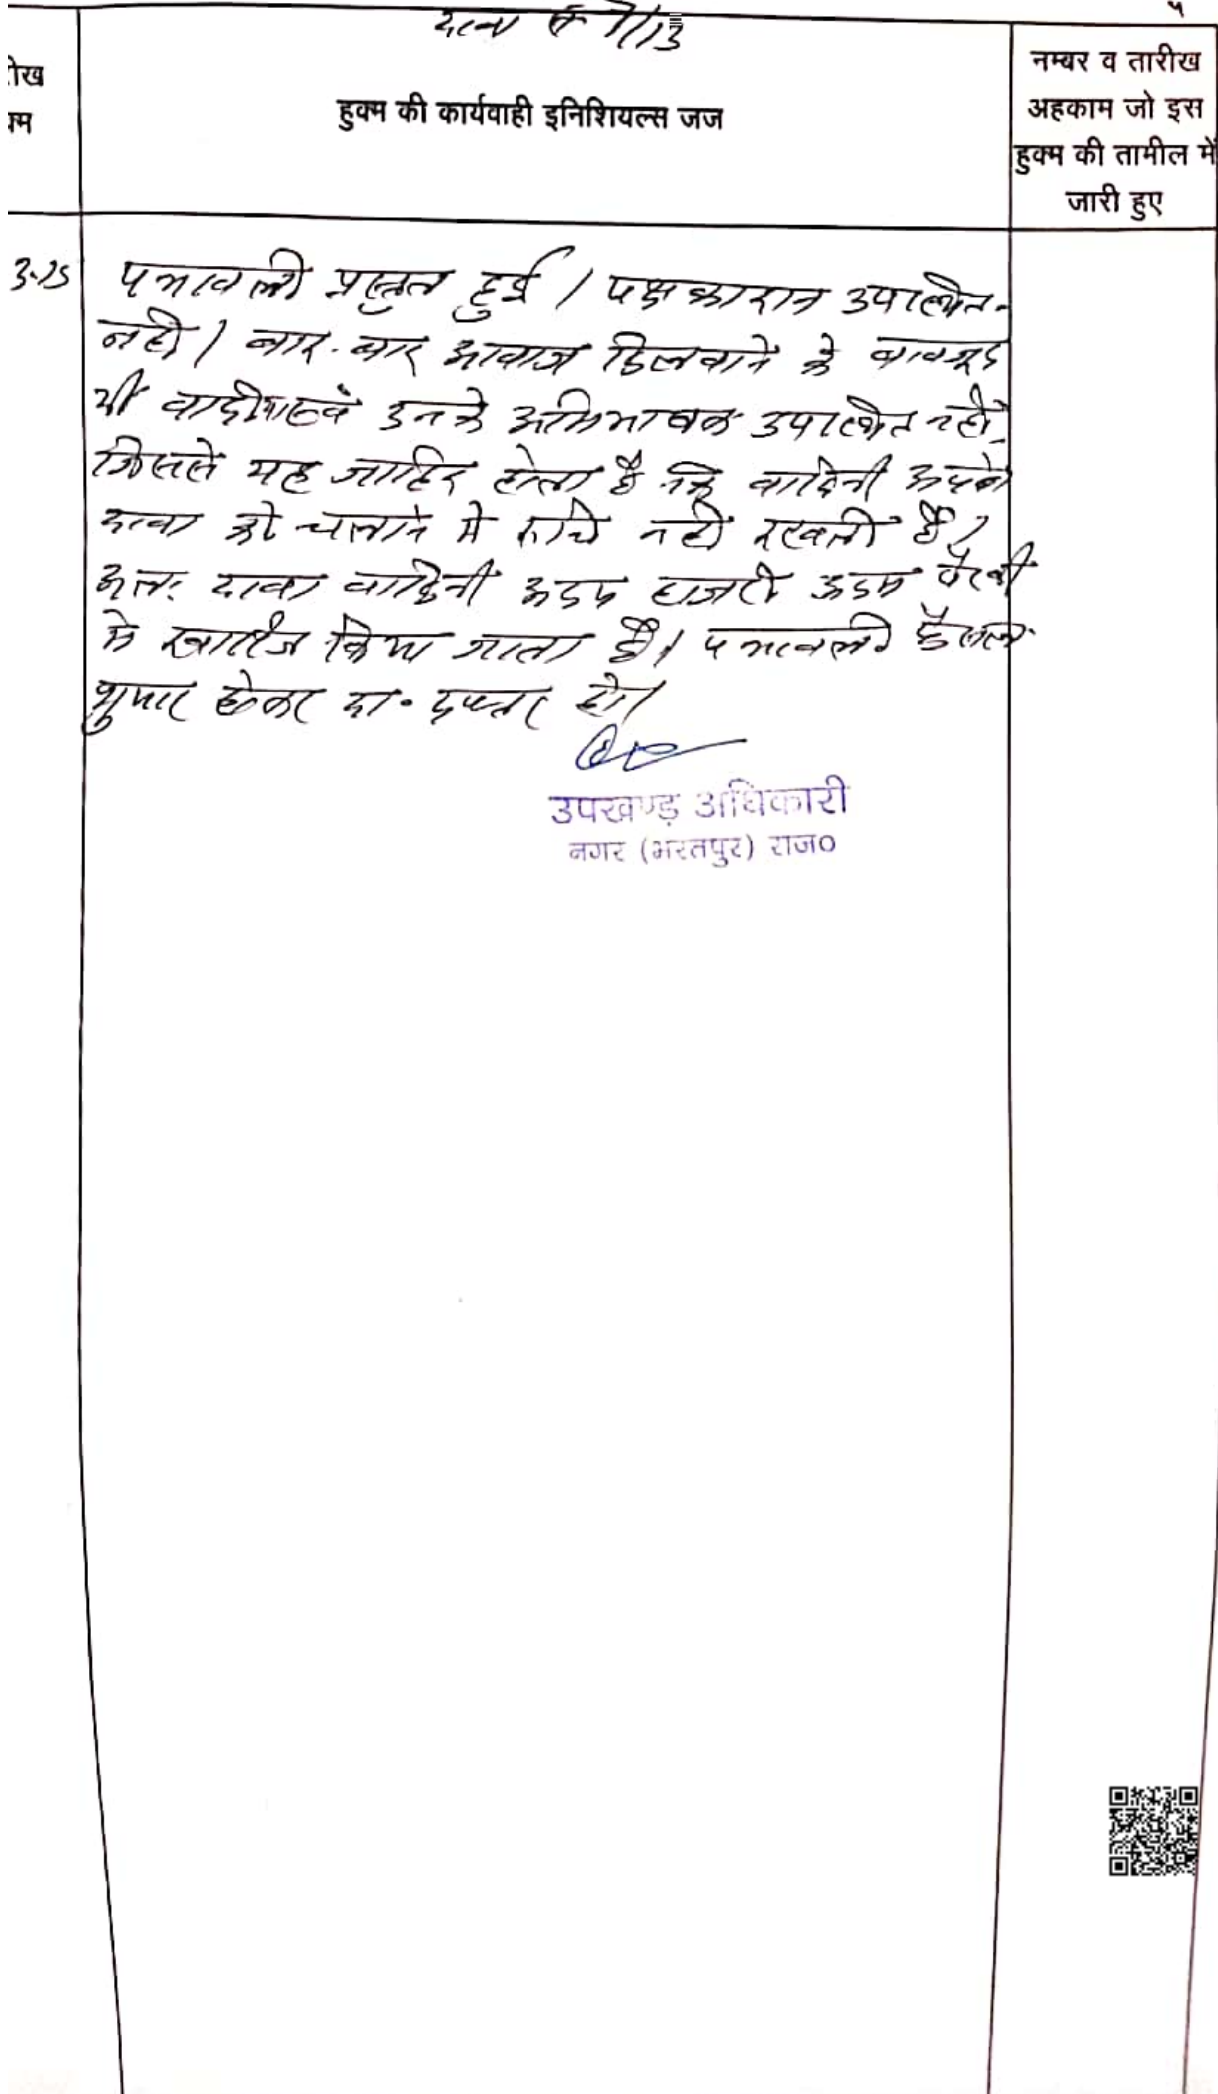 दावा सं 7/13
५
रीख
क्म
हुक्म की कार्यवाही इनिशियल्स जज
नम्बर व तारीख
अहकाम जो इस
हुक्म की तामील में
जारी हुए
3-15
पत्रावली प्रस्तुत हुई। पक्षकारान उपस्थित
नही। बार-बार आवाज दिलवाने के बावजूद
भी वादीया एवं उनके अभिभाषक उपस्थित नही
जिससे यह जाहिर होता है कि वादिनी अपने
दावा को चलाने मे रूचि नही रखती है।
अतः दावा वादिनी अदम हाजरी अदम पैरवी
मे खारीज किया जाता है। पत्रावली फैसल
शुमार होकर दा. दफ्तर हो।
उपखण्ड़ अधिकारी
नगर (भरतपुर) राज०